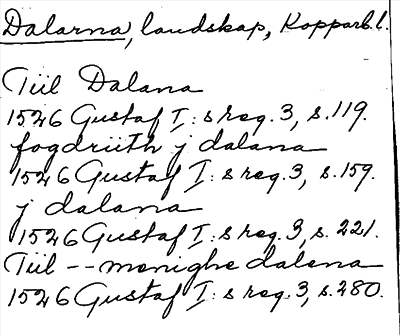 Dalarna, landskap, Kopparb. l.
Tiil Dalana
1526 Gustaf I:s reg. 3, s. 119.
fogdriith j dalana
1526 Gustaf I:s reg. 3, s. 159.
j dalana
1526 Gustaf I:s reg. 3, s. 221.
Tiil -- menighe dalana
1526 Gustaf I:s reg. 3, s. 280.